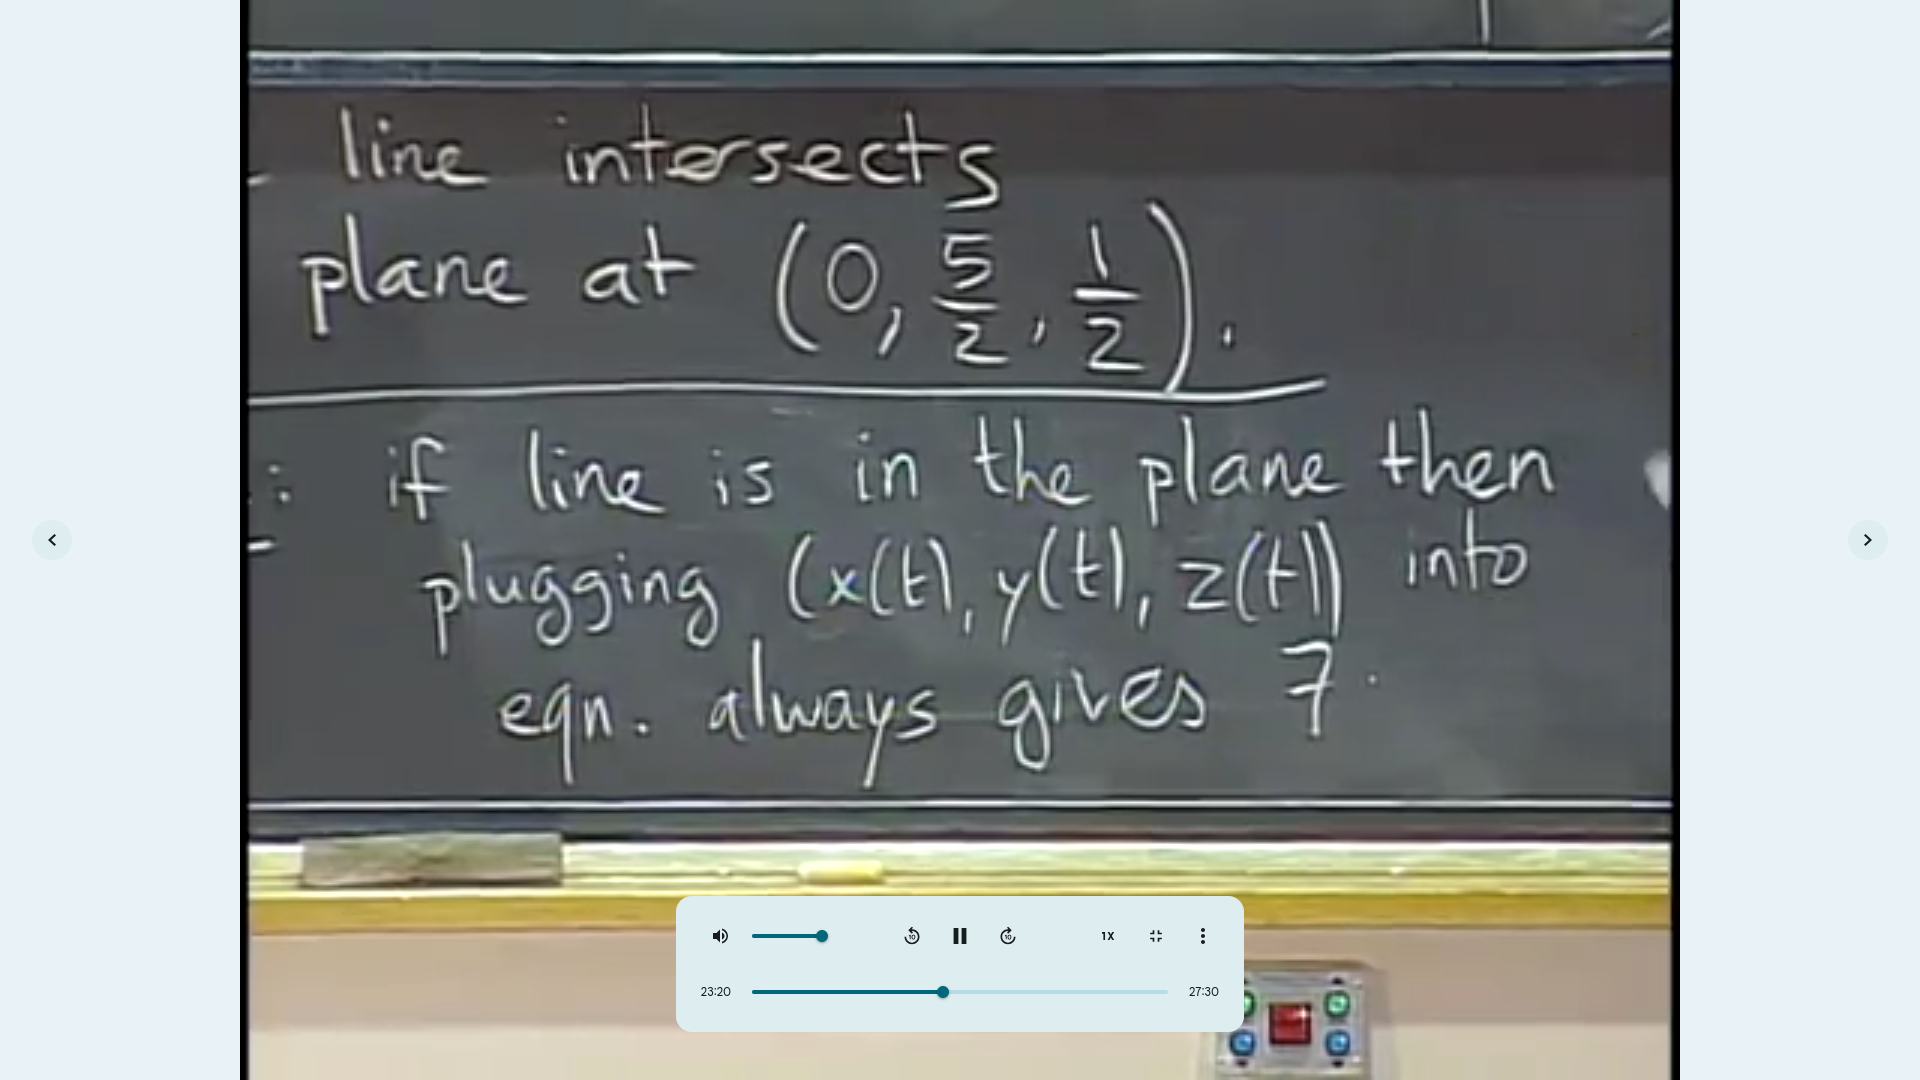 line intersects
plane at (0, 5/2, 1/2).
: if line is in the plane then
plugging (x(t), y(t), z(t)) into
eqn. always gives 7.
10
10
1X
23:20
27:30